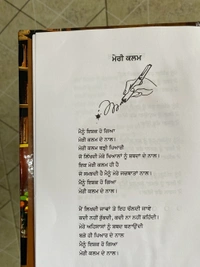 ਮੇਰੀ ਕਲਮ
ਮੈਨੂੰ ਇਸ਼ਕ ਹੋ ਗਿਆ
ਮੇਰੀ ਕਲਮ ਦੇ ਨਾਲ।
ਮੇਰੀ ਕਲਮ ਬੜੀ ਪਿਆਰੀ
ਜੋ ਲਿਖਦੀ ਮੇਰੇ ਖਿਆਲਾਂ ਨੂੰ ਸ਼ਬਦਾਂ ਦੇ ਨਾਲ।
ਇਕ ਮੇਰੀ ਕਲਮ ਹੀ ਹੈ
ਜੋ ਸਮਝਦੀ ਹੈ ਮੈਨੂੰ ਮੇਰੇ ਜਜ਼ਬਾਤਾਂ ਨਾਲ।
ਮੈਨੂੰ ਇਸ਼ਕ ਹੋ ਗਿਆਂ
ਮੇਰੀ ਕਲਮ ਦੇ ਨਾਲ।
ਮੈਂ ਲਿਖਦੀ ਜਾਵਾਂ ਤੇ ਇਹ ਚੱਲਦੀ ਜਾਵੇ
ਕਦੀ ਨਹੀਂ ਰੁੱਕਦੀ, ਕਦੀ ਨਾ ਨਹੀਂ ਕਹਿੰਦੀ।
ਮੇਰੇ ਅਹਿਸਾਸਾਂ ਨੂੰ ਸ਼ਬਦ ਬਣਾਉਂਦੀ
ਬੜੇ ਹੀ ਪਿਆਰ ਦੇ ਨਾਲ
ਮੈਨੂੰ ਇਸ਼ਕ ਹੋ ਗਿਆ
ਮੇਰੀ ਕਲਮ ਦੇ ਨਾਲ।